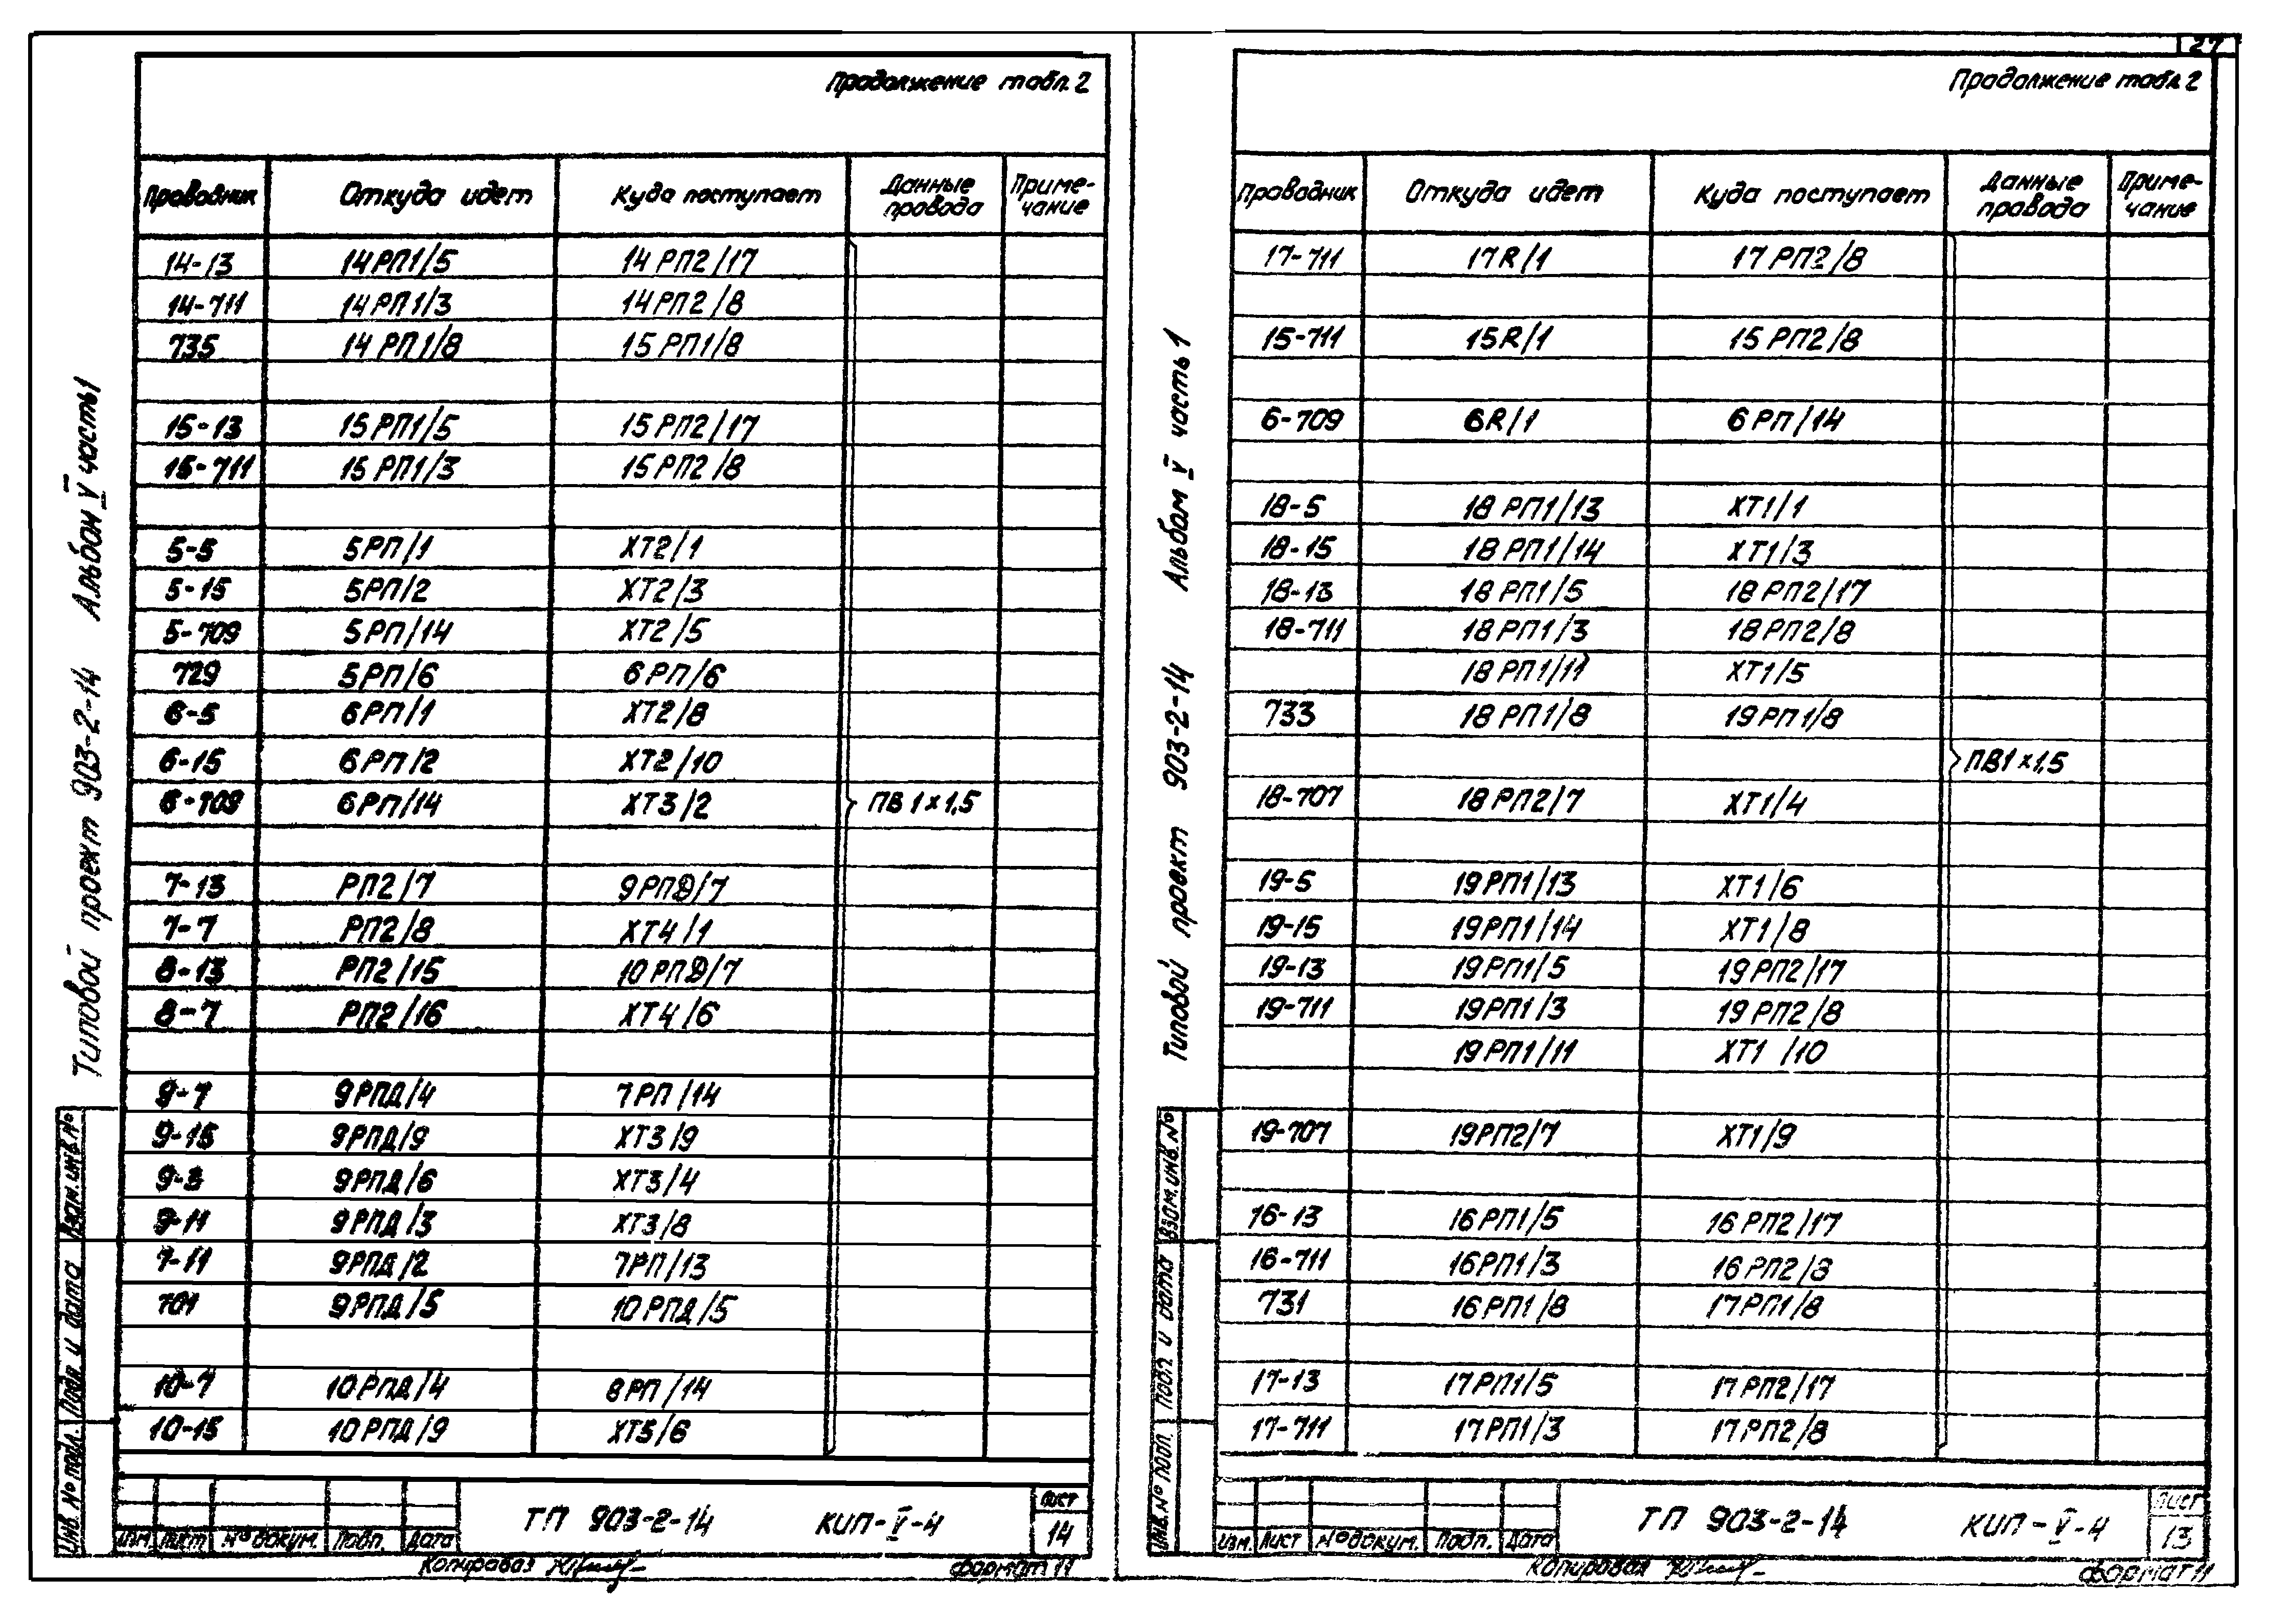 27
Продолжение табл. 2
Проводник Откуда идет Куда поступает Данные провода Приме-чание
14-13 14РП1/5 14РП2/17
14-711 14РП1/3 14РП2/8
735 14РП1/8 15РП1/8
15-13 15РП1/5 15РП2/17
15-711 15РП1/3 15РП2/8
5-5 5РП/1 ХТ2/1
5-15 5РП/2 ХТ2/3
5-709 5РП/14 ХТ2/5
729 5РП/6 6РП/6
6-5 6РП/1 ХТ2/8
6-15 6РП/2 ХТ2/10
6-709 6РП/14 ХТ3/2 ПВ1×1,5
7-13 РП2/7 9РПД/7
7-7 РП2/8 ХТ4/1
8-13 РП2/15 10РПД/7
8-7 РП2/16 ХТ4/6
9-7 9РПД/4 7РП/14
9-15 9РПД/9 ХТ3/9
9-3 9РПД/6 ХТ3/4
9-11 9РПД/3 ХТ3/8
7-11 9РПД/2 7РП/13
701 9РПД/5 10РПД/5
10-7 10РПД/4 8РП/14
10-15 10РПД/9 ХТ5/6
Типовой проект 903-2-14 Альбом V часть 1
Инв. № подл. Подп. и дата Взам. инв. №
Изм. Лист № докум. Подп. Дата
ТП 903-2-14 КИП-V-4
Лист
14
Копировал
формат 11
Продолжение табл. 2
Проводник Откуда идет Куда поступает Данные провода Приме-чание
17-711 17R/1 17РП2/8
15-711 15R/1 15РП2/8
6-709 6R/1 6РП/14
18-5 18РП1/13 ХТ1/1
18-15 18РП1/14 ХТ1/3
18-13 18РП1/5 18РП2/17
18-711 18РП1/3 18РП2/8
18РП1/11 ХТ1/5
733 18РП1/8 19РП1/8
ПВ1×1,5
18-707 18РП2/7 ХТ1/4
19-5 19РП1/13 ХТ1/6
19-15 19РП1/14 ХТ1/8
19-13 19РП1/5 19РП2/17
19-711 19РП1/3 19РП2/8
19РП1/11 ХТ1 /10
19-707 19РП2/7 ХТ1/9
16-13 16РП1/5 16РП2/17
16-711 16РП1/3 16РП2/8
731 16РП1/8 17РП1/8
17-13 17РП1/5 17РП2/17
17-711 17РП1/3 17РП2/8
Типовой проект 903-2-14 Альбом V часть 1
Инв. № подл. Подп. и дата Взам. инв. №
Изм. Лист № докум. Подп. Дата
ТП 903-2-14 КИП-V-4
Лист
13
Копировал
формат 11